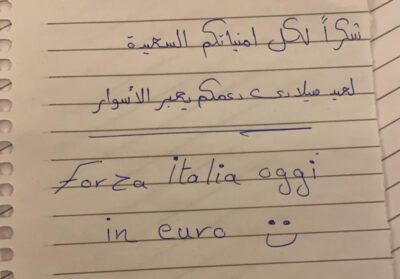 شكراً لكل امنياتكم السعيدة
لعيد ميلادي دعمكم يعبر الأسوار
forza italia oggi
in euro